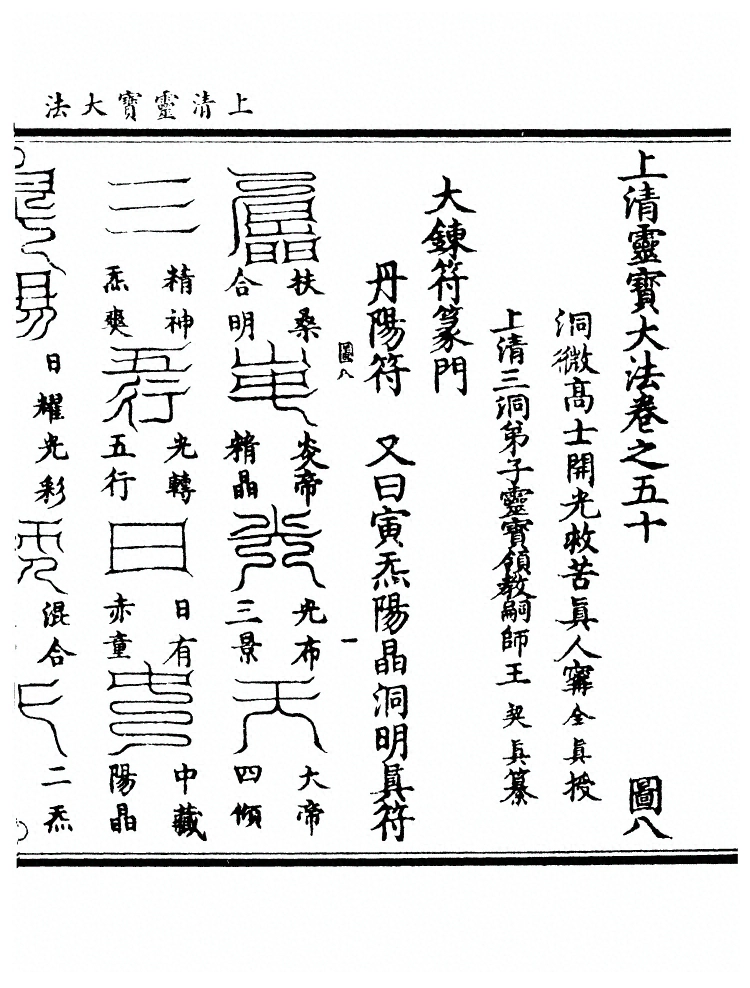 上清靈寶大法
上清靈寶大法卷之五十 圖八
洞微高士開光救苦眞人甯全眞授
上清三洞弟子靈寶領教嗣師王契眞纂
大鍊符篆門
丹陽符 又曰寅炁陽晶洞明眞符
圖八 一
扶桑合明
炎帝精晶
光布三景
大帝四傾
精神炁爽
光轉五行
日有赤童
中藏陽晶
日耀光彩
混合二炁